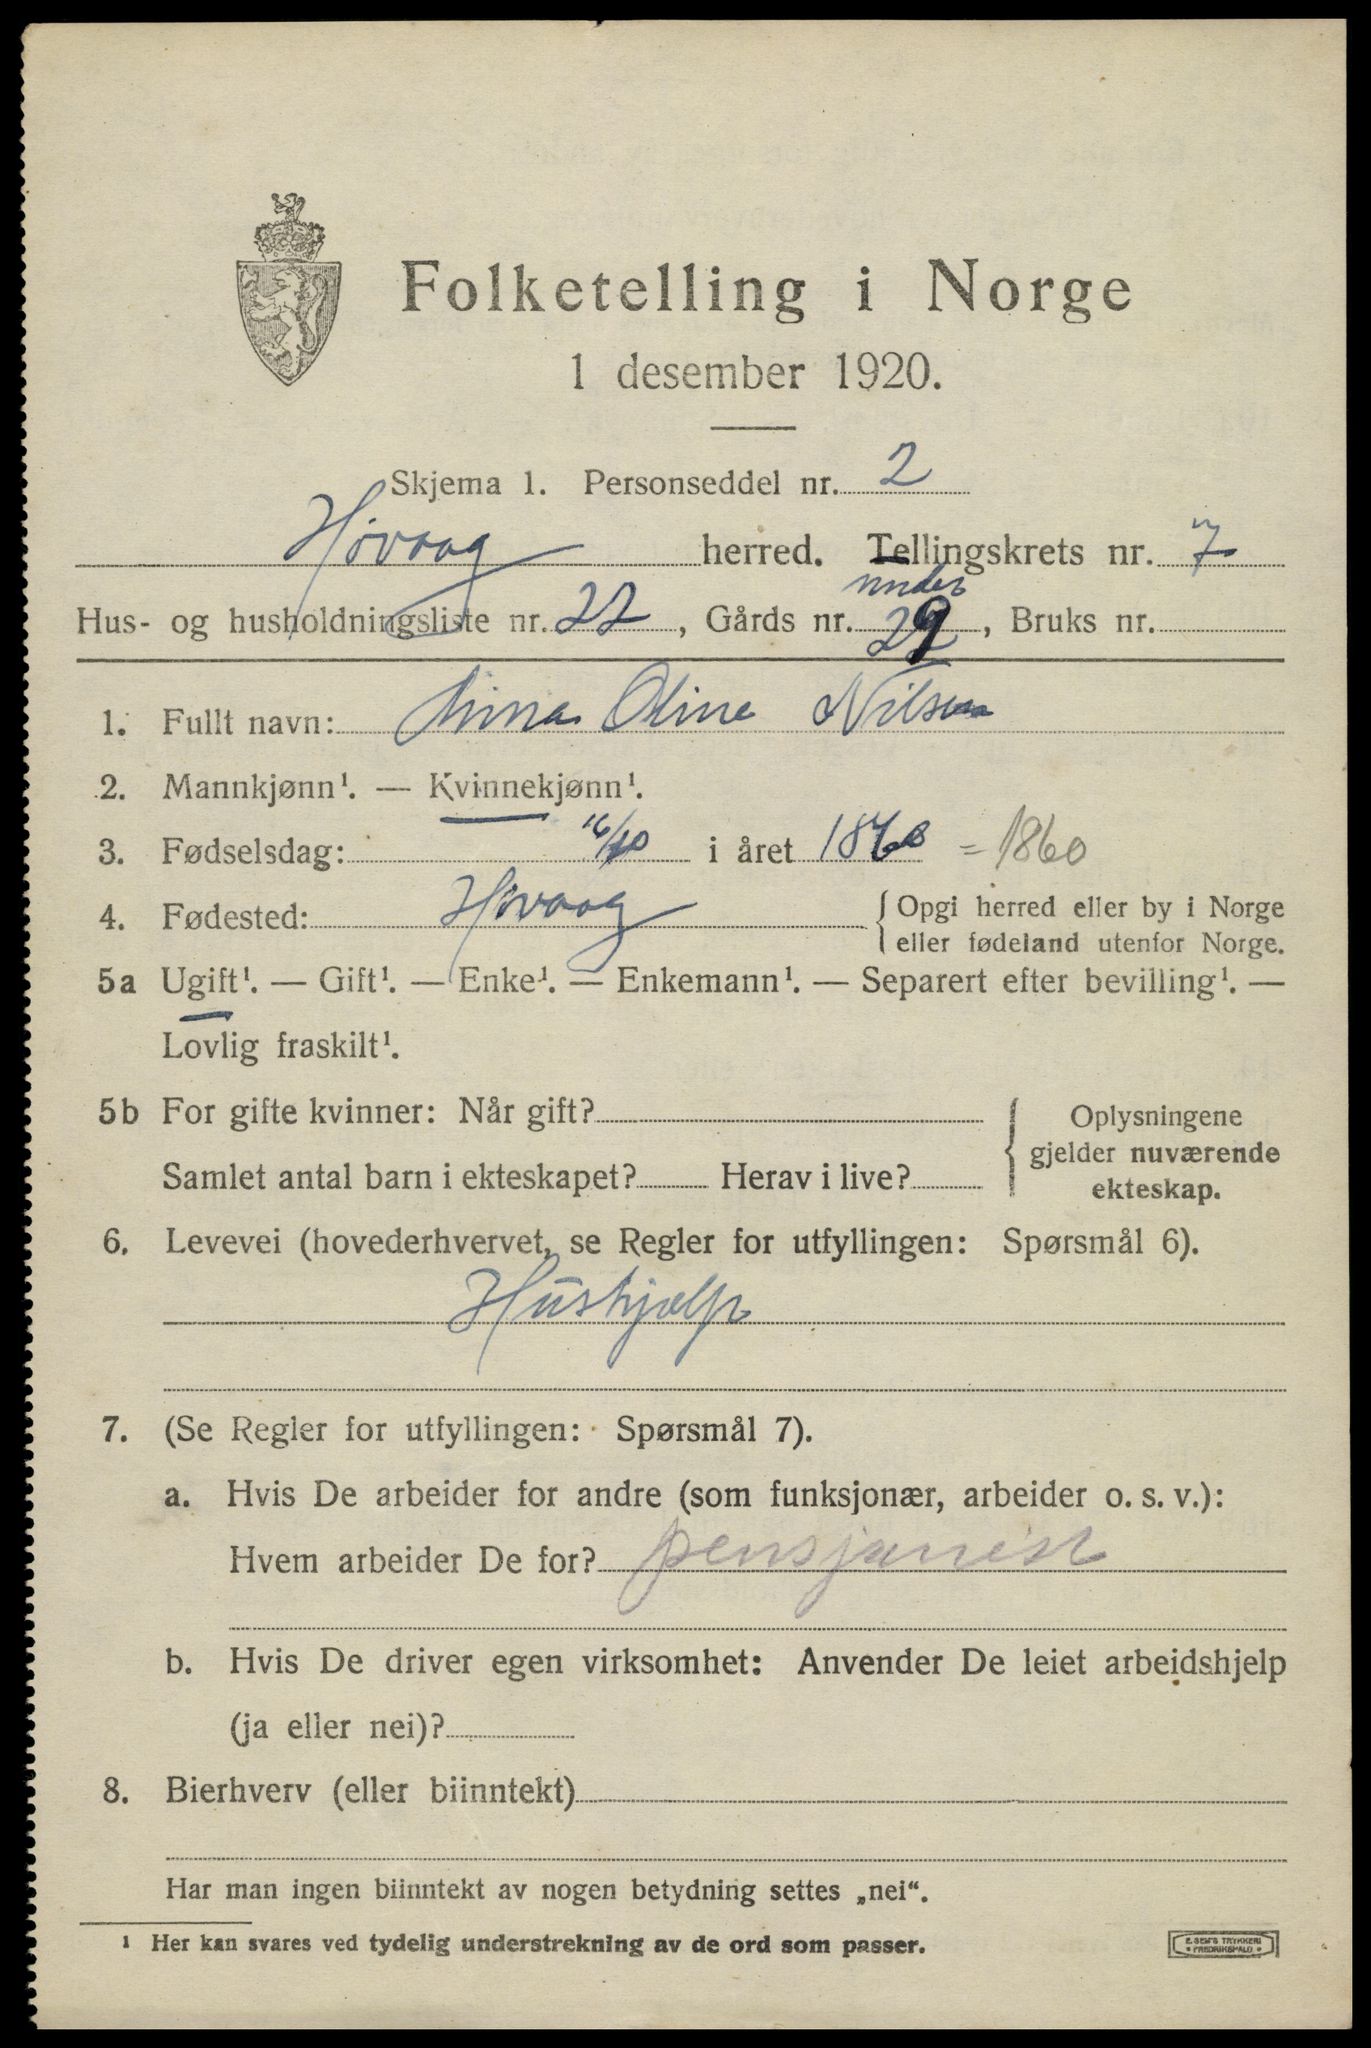 Folketelling i Norge
1 desember 1920.
Skjema 1. Personseddel nr. 2
Høvaag herred. Tellingskrets nr. 7
under
Hus- og husholdningsliste nr. 22, Gårds nr. 29, Bruks nr.
1. Fullt navn: Anna Oline Nilsen
2. Mannkjønn¹. — Kvinnekjønn¹.
3. Fødselsdag: 16/10 i året 1860 = 1860
4. Fødested: Høvaag { Opgi herred eller by i Norge
eller fødeland utenfor Norge.
5a Ugift¹. — Gift¹. — Enke¹. — Enkemann¹. — Separert efter bevilling¹. —
Lovlig fraskilt¹.
5b For gifte kvinner: Når gift? { Oplysningene
gjelder nuværende
Samlet antal barn i ekteskapet? Herav i live? ekteskap.
6. Levevei (hovederhvervet, se Regler for utfyllingen: Spørsmål 6).
Hushjælp
7. (Se Regler for utfyllingen: Spørsmål 7).
a. Hvis De arbeider for andre (som funksjonær, arbeider o. s. v.):
Hvem arbeider De for? pensjonist
b. Hvis De driver egen virksomhet: Anvender De leiet arbeidshjelp
(ja eller nei)?
8. Bierhverv (eller biinntekt)
Har man ingen biinntekt av nogen betydning settes „nei“.
¹ Her kan svares ved tydelig understrekning av de ord som passer.
E. SEM'S TRYKKERI
FREDRIKSHALD